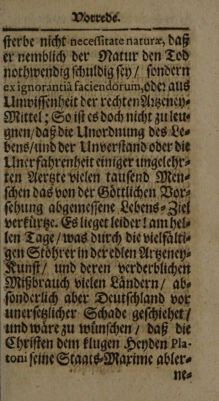 Vorrede.
sterbe nicht necessitate naturæ, daß
er nemblich der Natur den Tod
nothwendig schuldig sey / sondern
ex ignorantiâ faciendorum, oder aus
Unwissenheit der rechten Artzeney-
Mittel; So ist es doch nicht zu leug-
gnen / daß die Unordnung des Le-
bens / und der Unverstand oder die
Unerfahrenheit einiger ungelehr-
ten Aertzte vielen tausend Men-
schen das von der Göttlichen Vor-
sehung abgemessene Lebens-Ziel
verkürtze. Es lieget leider! am hel-
len Tage / was durch die vielfälti-
gen Stöhrer in der edlen Artzeney-
Kunst / und deren verderblichen
Mißbrauch vielen Ländern / ab-
sonderlich aber Deutschland vor
unersetzlicher Schade geschiehet /
und wäre zu wünschen / daß die
Christen dem klugen Heyden Pla-
toni seine Staats-Maxime abler-
ne-